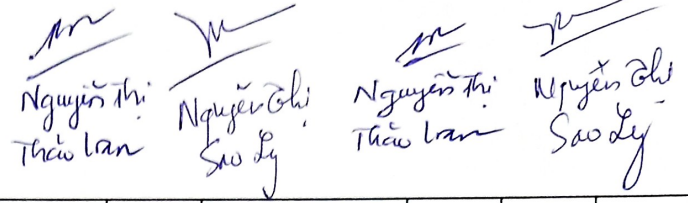 Nguyễn Thị
Thảo Lan
Nguyễn Thị
Sao Ly
Nguyễn Thị
Thảo Lan
Nguyễn Thị
Sao Ly